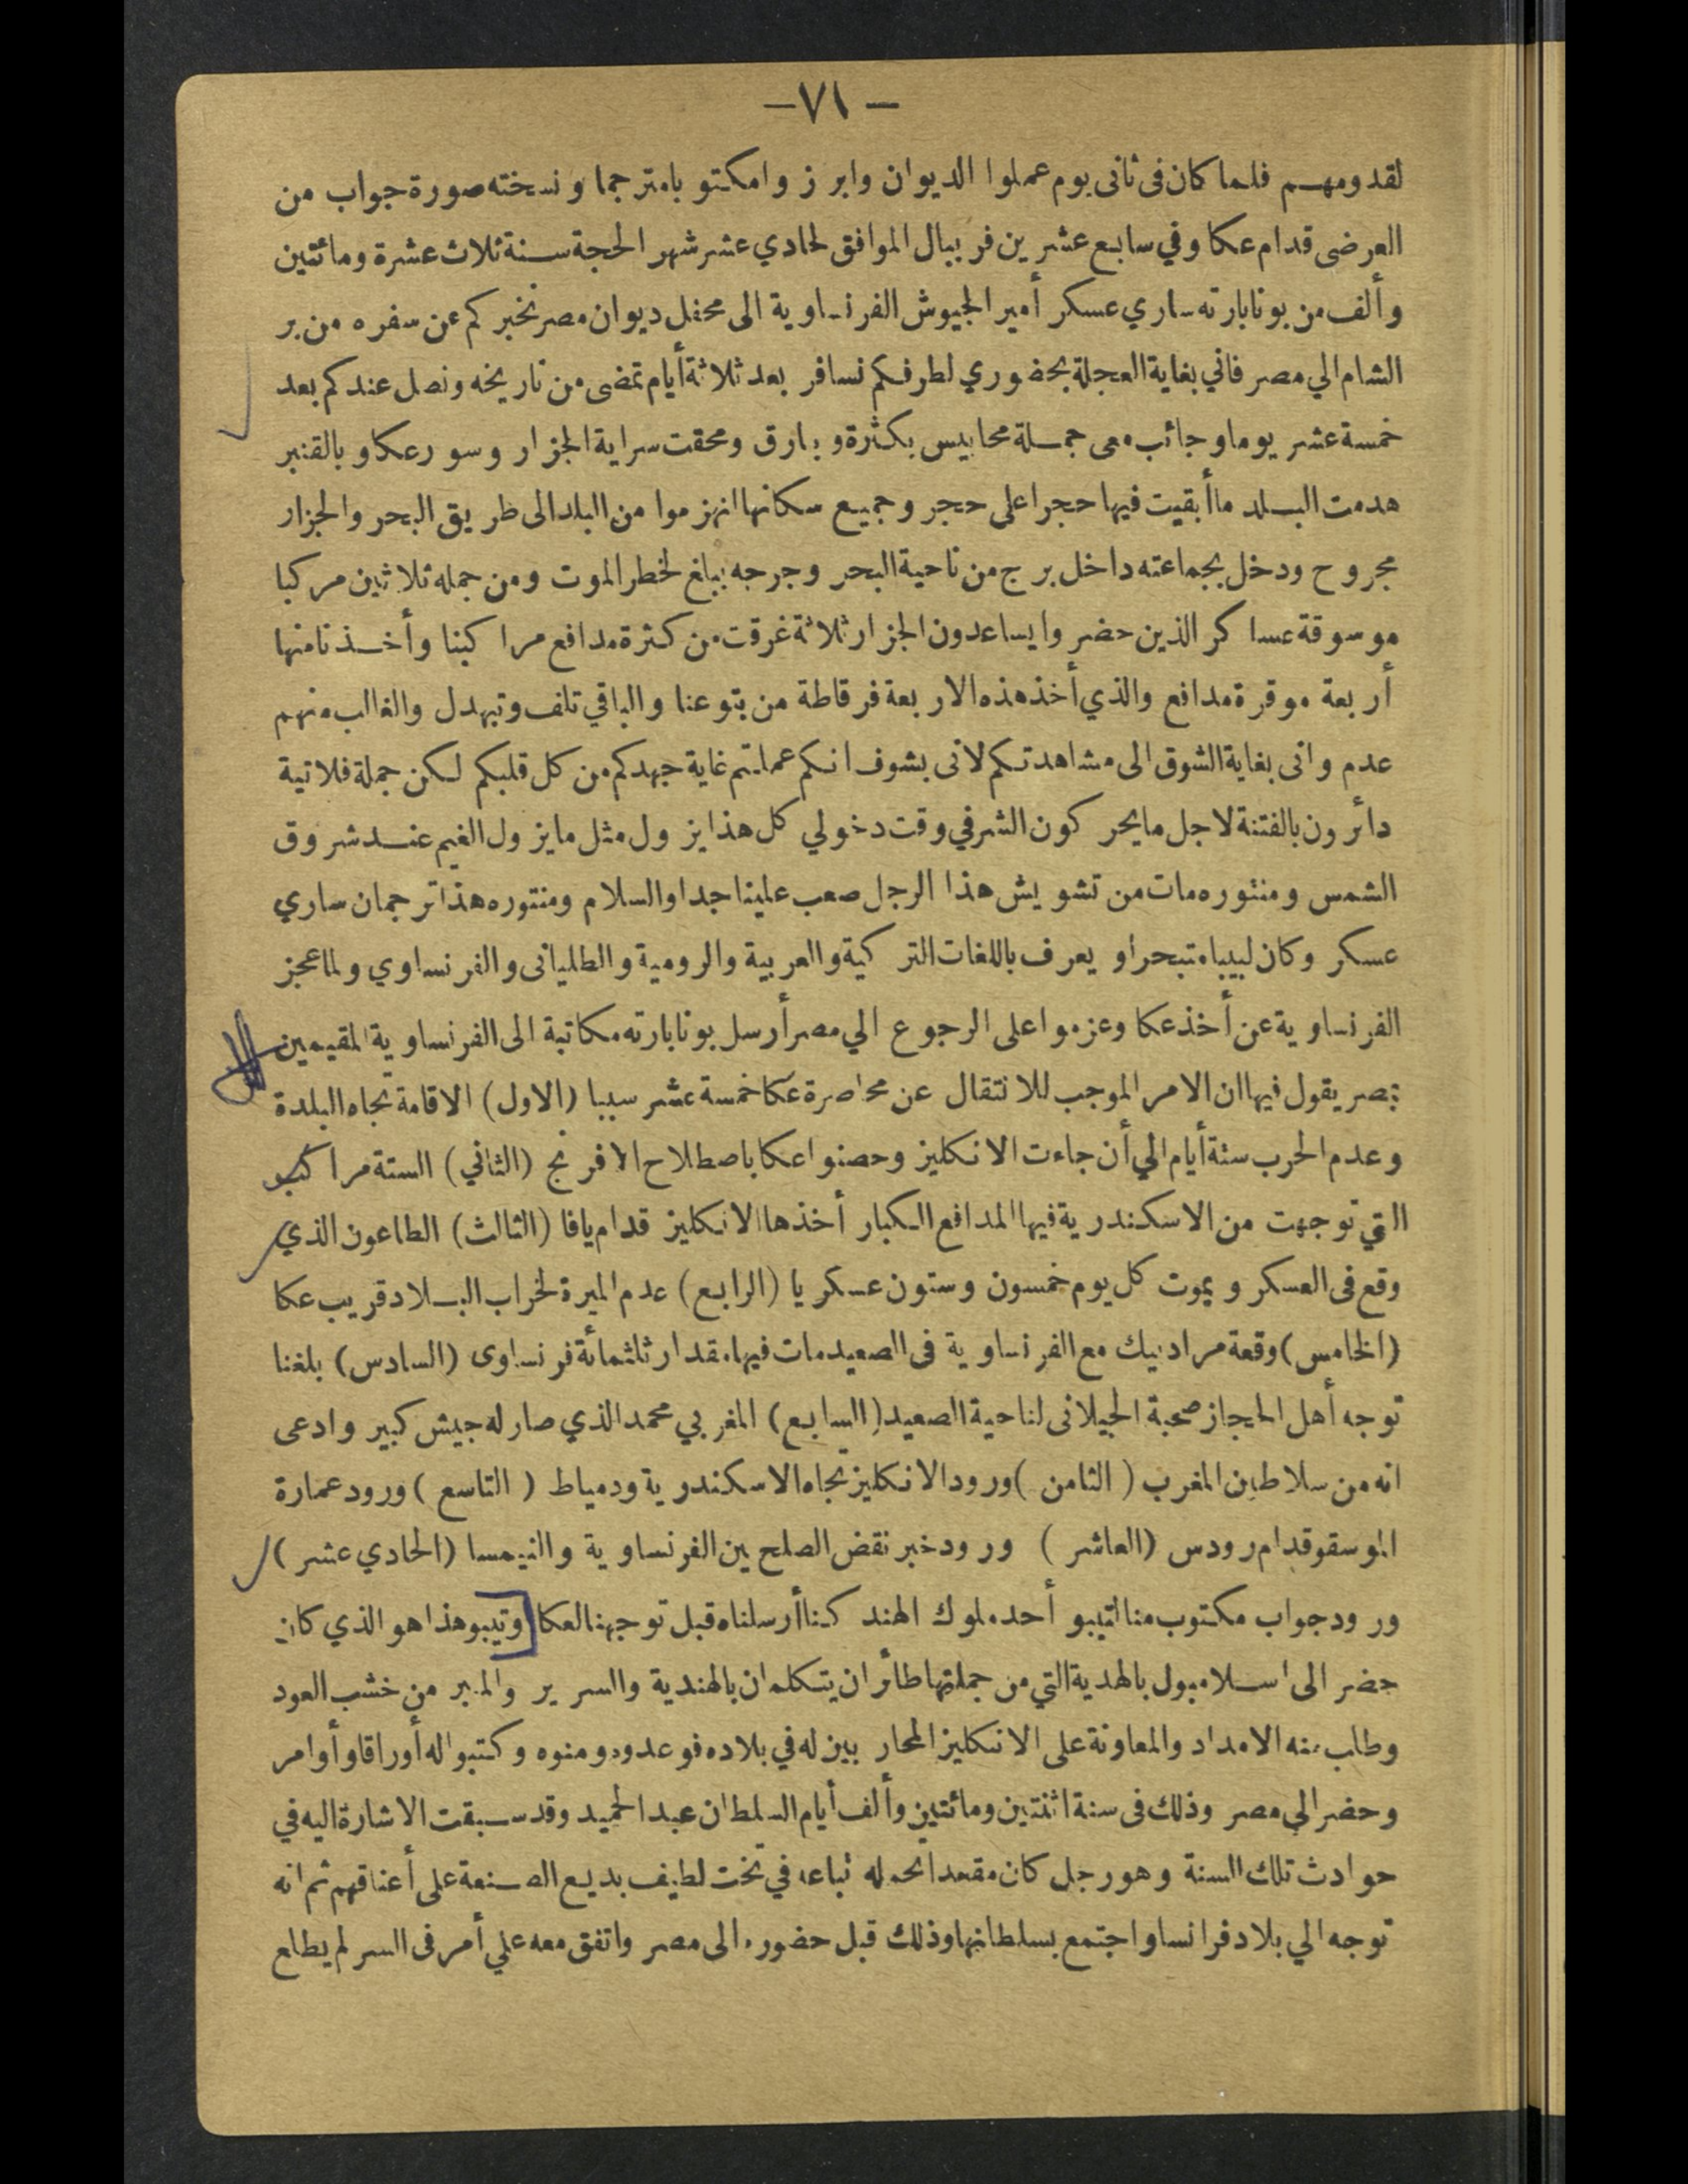 — ٧١ —
لقدومهم فلما كان في ثاني يوم عملوا الديوان وابرزوا مكتوبا مترجما ونسخته صورة جواب من
العرضى قدام عكا وفي سابع عشرين فريبال الموافق لحادي عشر شهر الحجة سنة ثلاث عشرة ومائتين
وألف من بونابارته ساري عسكر أمير الجيوش الفرنساوية الى محفل ديوان مصر نخبركم عن سفره من بر
الشام الي مصر فاني بغاية العجلة بحضوري لطرفكم نسافر بعد ثلاثة أيام تمضى من تاريخه ونصل عندكم بعد
خمسة عشر يوما وجائب معى جملة محابيس بكثرة وبيارق ومحقت سراية الجزار وسور عكا وبالقنبر
هدمت البلد ما أبقيت فيها حجرا على حجر وجميع سكانها انهزموا من البلد الى طريق البحر والجزار
مجروح ودخل بجماعته داخل برج من ناحية البحر وجرحه يبلغ لخطر الموت ومن جملة ثلاثين مركبا
موسوقة عساكر الذين حضروا يساعدون الجزار ثلاثة غرقت من كثرة مدافع مراكبنا وأخذنا منها
أربعة موقرة مدافع والذي أخذ هذه الاربعة فرقاطة من بتوعنا والباقي تلف وتبهدل والغالب منهم
عدم وانى بغاية الشوق الى مشاهدتكم لانى بشوف انكم عملتم غاية جهدكم من كل قلبكم لكن جملة فلاتية
دائرون بالفتنة لاجل ما يحركون الشر في وقت دخولي كل هذا يزول مثل ما يزول الغيم عند شروق
الشمس ومنتوره مات من تشويش هذا الرجل صعب علينا جدا والسلام ومنتوره هذا ترجمان ساري
عسكر وكان لبيبا متبحرا و يعرف باللغات التركية والعربية والرومية والطليانى والفرنساوي ولما عجز
الفرنساوية عن أخذ عكا وعزموا على الرجوع الي مصر أرسل بونابارته مكاتبة الى الفرنساوية المقيمين
بمصر يقول فيها ان الامر الموجب للانتقال عن محاصرة عكا خمسة عشر سببا (الاول) الاقامة تجاه البلدة
وعدم الحرب ستة أيام الي أن جاءت الانكليز وحصنوا عكا باصطلاح الافرنج (الثاني) الستة مراكب
التي توجهت من الاسكندرية فيها المدافع الكبار أخذها الانكليز قدام يافا (الثالث) الطاعون الذي
وقع في العسكر ويموت كل يوم خمسون وستون عسكريا (الرابع) عدم الميرة لخراب البلاد قريب عكا
(الخامس) وقعة مراد بيك مع الفرنساوية فى الصعيد مات فيها مقدار ثلثمائة فرنساوى (السادس) بلغنا
توجه أهل الحجاز صحبة الجيلانى لناحية الصعيد (السابع) المغربي محمد الذي صار له جيش كبير وادعى
انه من سلاطين المغرب (الثامن) ورود الانكليز تجاه الاسكندرية ودمياط (التاسع) ورود عمارة
الموسقو قدام رودس (العاشر) ورود خبر نقض الصلح بين الفرنساوية والنيمسا (الحادي عشر)
ورود جواب مكتوب منا لتيبو أحد ملوك الهند كنا أرسلناه قبل توجهنا لعكا وتيبو هذا هو الذي كان
حضر الى اسلامبول بالهدية التي من جملتها طائران يتكلمان بالهندية والسرير والمنبر من خشب العود
وطلب منه الامداد والمعاونة على الانكليز المحاربين له في بلاده فوعدوه ومنوه وكتبوا له أوراقا وأوامر
وحضر الي مصر وذلك فى سنة اثنتين ومائتين وألف أيام السلطان عبد الحميد وقد سبقت الاشارة اليه في
حوادث تلك السنة وهو رجل كان مقعدا تحمله تباعه في تخت لطيف بديع الصنعة على أعناقهم ثم انه
توجه الي بلاد فرانسا واجتمع بسلطانها وذلك قبل حضوره الى مصر واتفق معه علي أمر فى السر لم يطلع